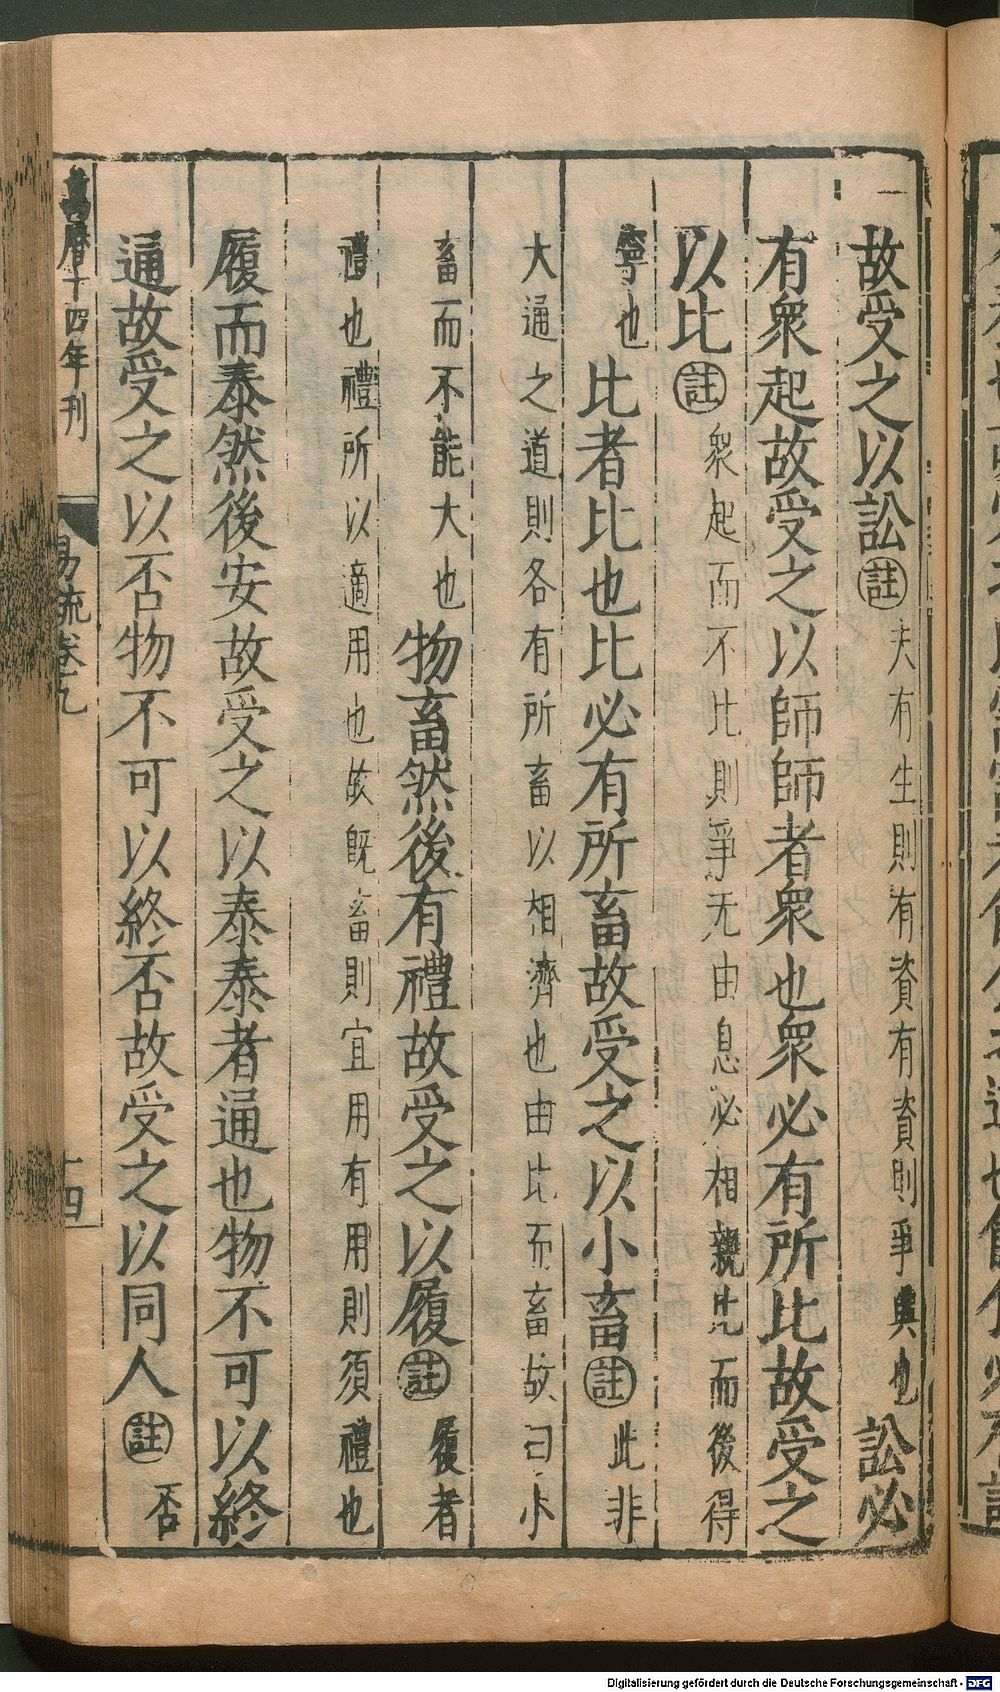 故受之以訟註夫有生則有資有資則爭興也訟必
有衆起故受之以師師者衆也衆必有所比故受之
以比註衆起而不比則爭无由息必相親比而後得
寧也比者比也比必有所畜故受之以小畜註此非
大通之道則各有所畜以相濟也由比而畜故曰小
畜而不能大也物畜然後有禮故受之以履註履者
禮也禮所以適用也故既畜則宜用有用則須禮也
履而泰然後安故受之以泰泰者通也物不可以終
通故受之以否物不可以終否故受之以同人註否
萬曆十四年刊
易疏卷九
十四
Digitalisierung gefördert durch die Deutsche Forschungsgemeinschaft - DFG